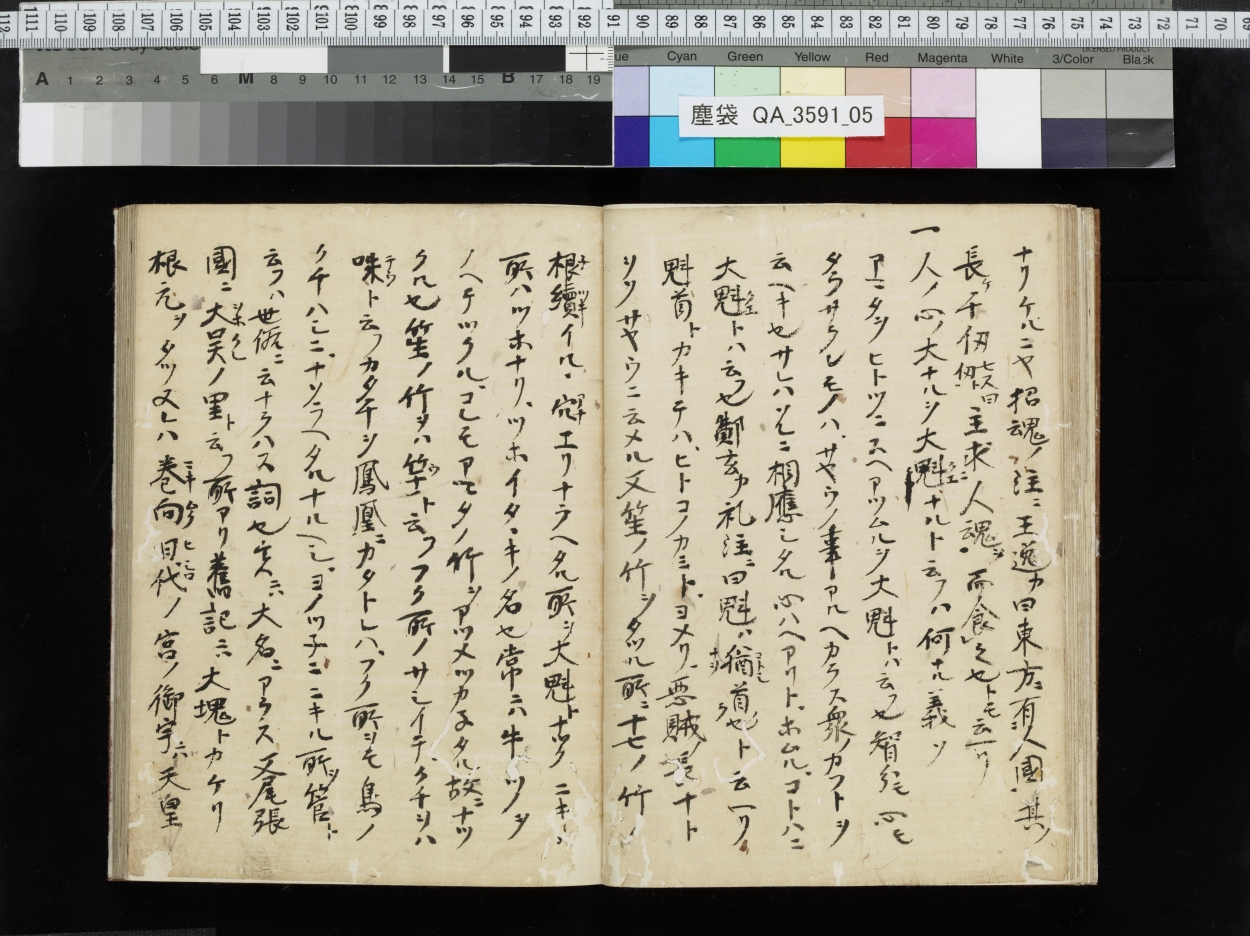 塵袋 QA_3591_05
Cyan Green Yellow Red Magenta White 3/Color Black
A 1 2 3 4 5 6 M 8 9 10 11 12 13 14 15 B 17 18 19
ナリケルニヤ招魂ノ注ニ王逸カ曰東方ニ有人國其
長ケ千仞七尺曰仞主求人魂ヲ而食之セトモ云ヘリ
一人ノ心ノ大ナルヲ大魁ナルト云フハ何ナル義ソ
アマタヲヒトツニスヘアツムルヲ大魁トハ云フ也智モ心モ
タラサラムモノハサヤウノ事アルヘカラス衆ノカフトヲ
云ヘキセサレハソレニ相應シタル心ハヘアリトホムルコトハニ
大魁トハ云フ也鄭玄カ礼注ニ曰魁ハ猶首也ト云ヘリ
魁首トカキテハヒトコノカミトヨメリ悪賊ノ張ナト
ヲソサヤウニ云メル又笙ノ竹ヲタツル所ニ十七ノ竹ノ
根續イル穴エリナラヘタル所ヲ大魁トナツク
所ハツホナリツホイタヽキノ名也常ニハ牛ノツノヲ
ノヘテツクルコレモアマタノ竹ヲアツメツカネタル故ニナツ
クル也笙ノ竹ヲハ竽ト云フフク所ノサシイテクチヲハ
咮ト云フカタチヲ鳳凰ニカタトレハフク所ヲモ鳥ノ
クチハシニナソラヘタルナルヘシヨノツネニニキル所ヲ管ト
云フハ世俗ニ云ナラハス詞也大名ニアラス又尾張
國ニ大呉ノ里ト云フ所アリ舊記ニハ大塊トカケリ
根元ヲタツヌレハ巻向日代ノ宮ノ御宇ニ天皇